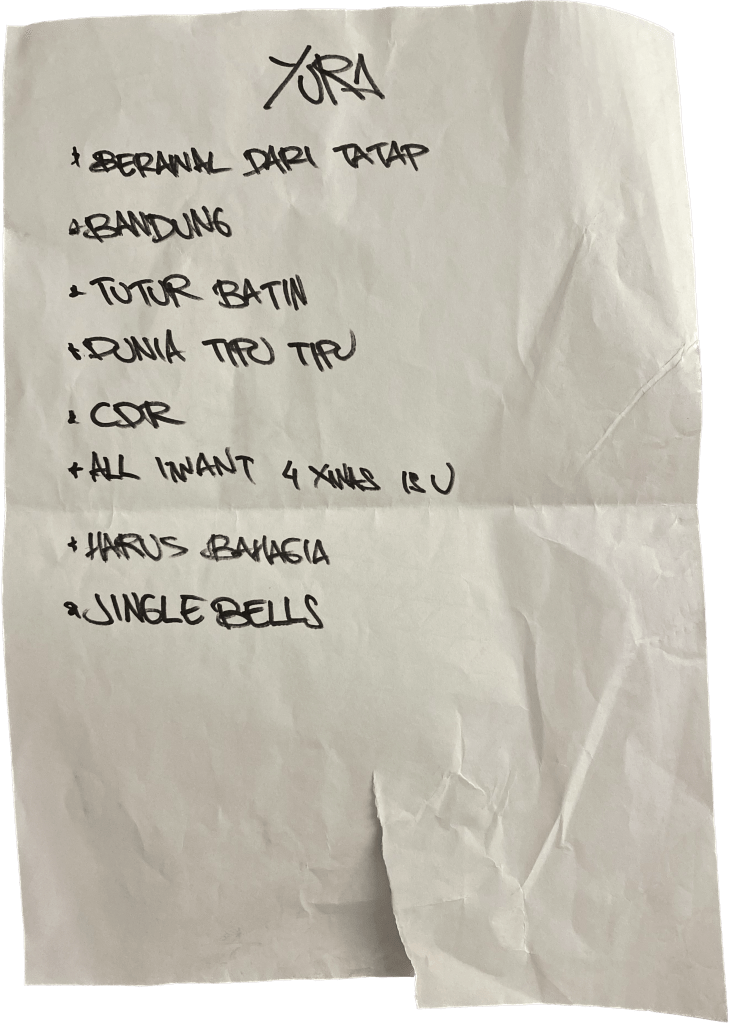 YURA
* BERAWAL DARI TATAP
* BANDUNG
* TUTUR BATIN
* DUNIA TIPU TIPU
* CDR
* ALL I WANT 4 XMAS IS U
* HARUS BAHAGIA
* JINGLE BELLS